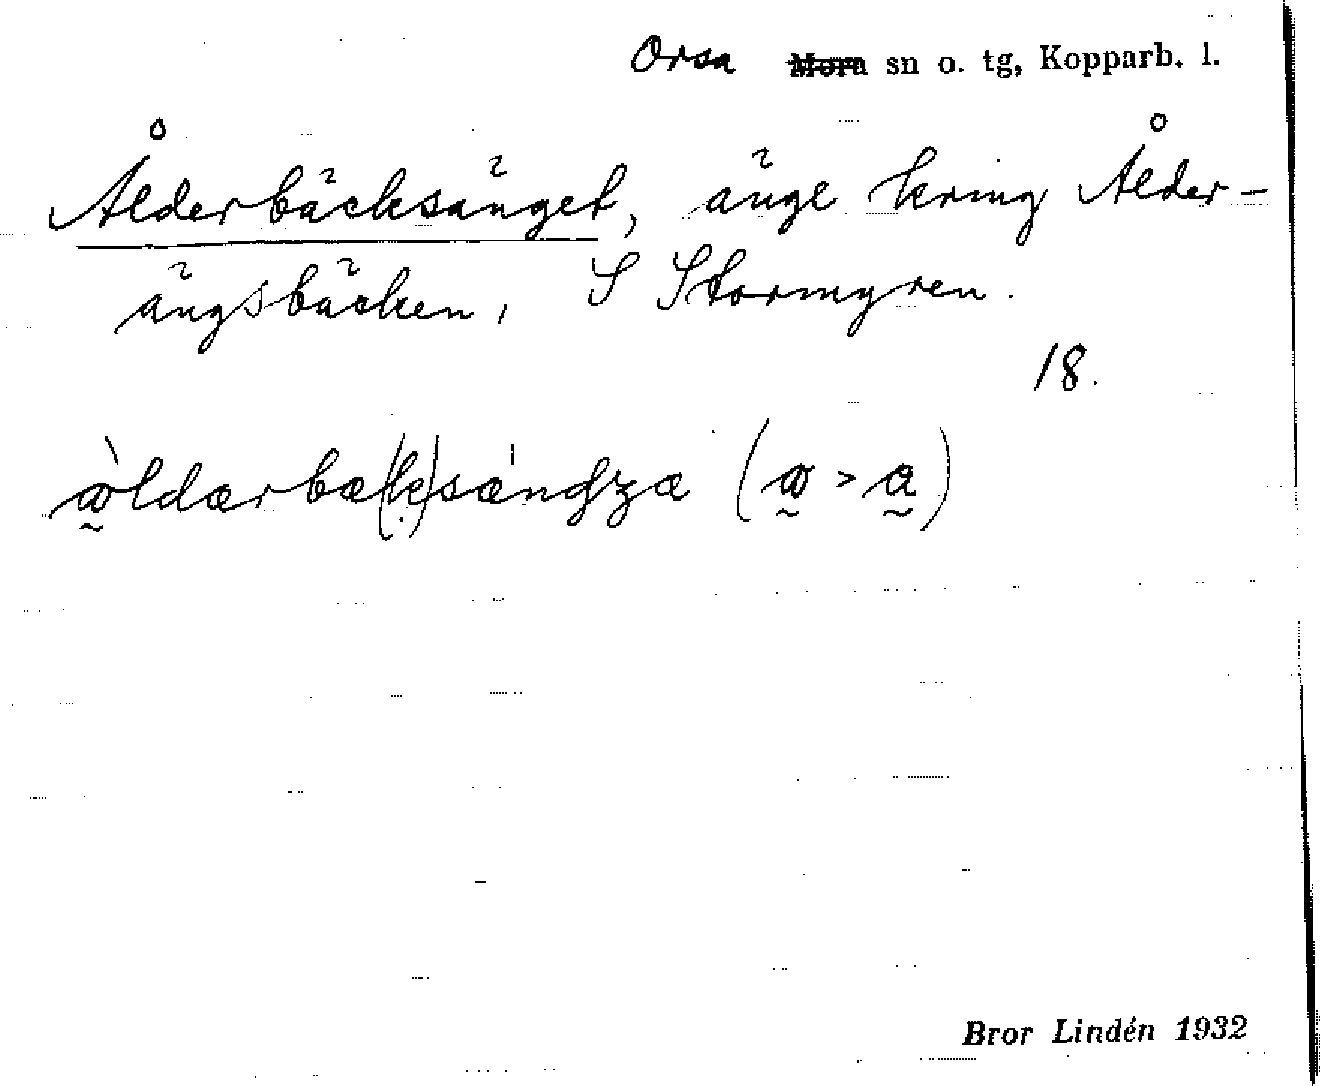 Orsa Mora sn o. tg, Kopparb. l.
Ålderbäcksänget, änge kring Ålder-
ängsbäcken, S Stormyren.
18.
à̰ldærbæ(k)sæ̀ndʒæ (a̰ > a̰)
Bror Lindén 1932